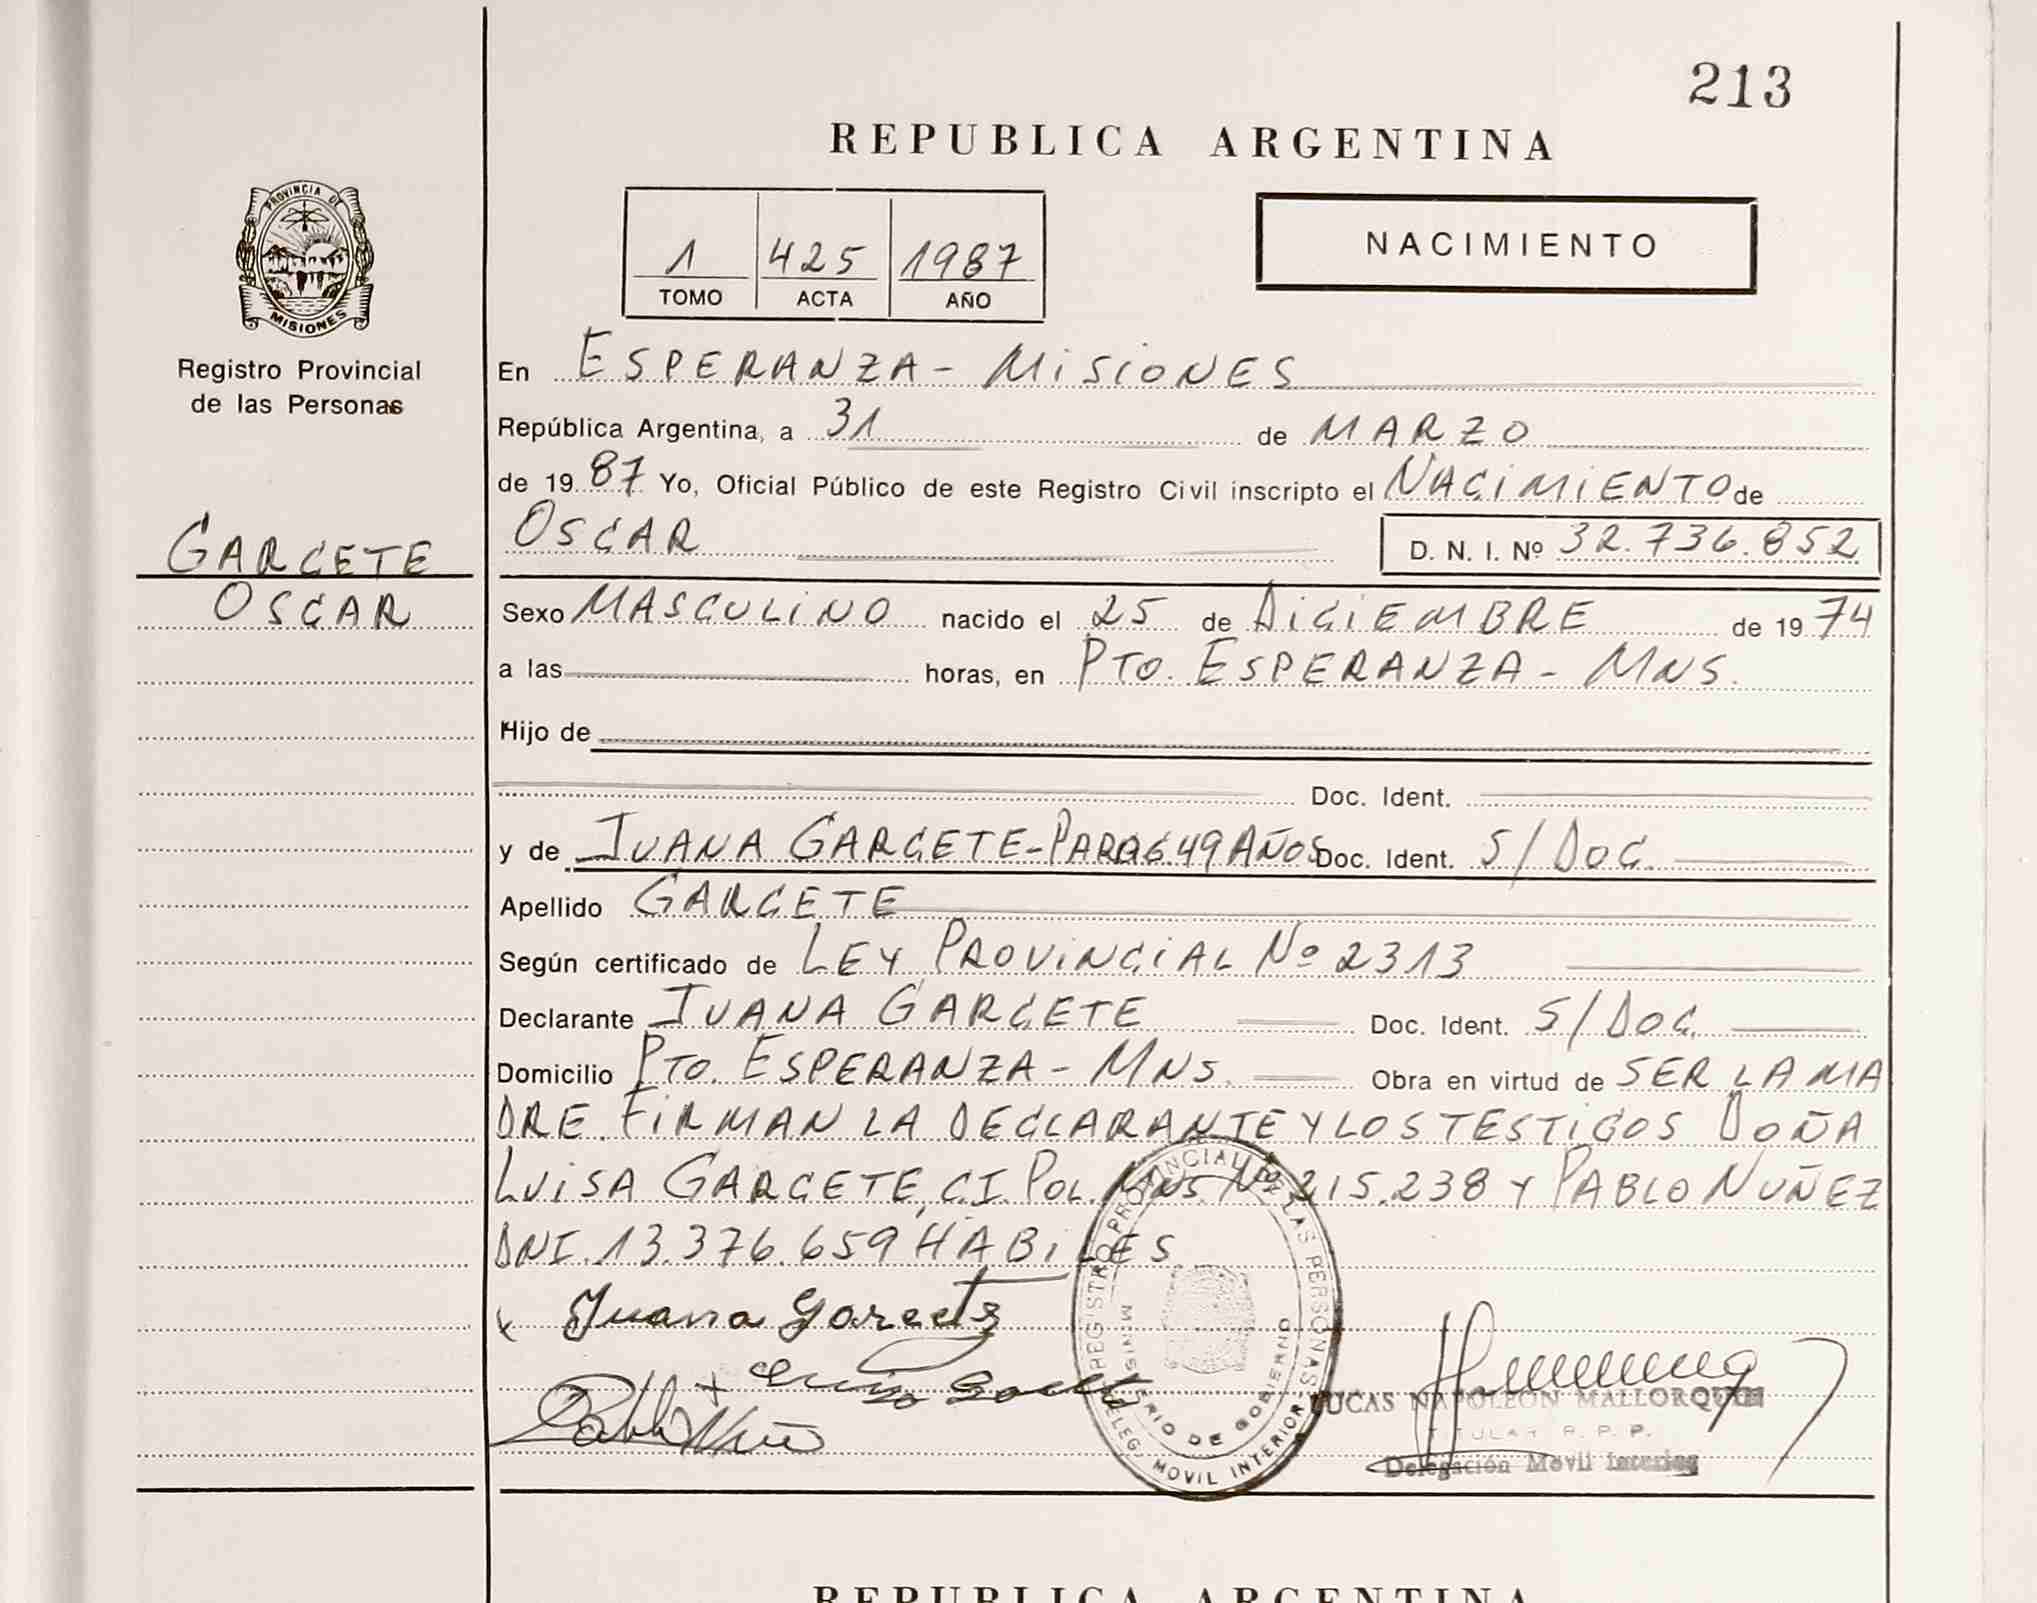 213
REPUBLICA ARGENTINA
1 425 1987
TOMO ACTA AÑO
NACIMIENTO
PROVINCIA DE
MISIONES
Registro Provincial
de las Personas
GARCETE
OSCAR
En ESPERANZA - MISIONES
República Argentina, a 31 de MARZO
de 1987 Yo, Oficial Público de este Registro Civil inscripto el NACIMIENTO de
OSCAR D. N. I. Nº 32.736.852
Sexo MASCULINO nacido el 25 de DICIEMBRE de 1974
a las horas, en PTO. ESPERANZA - MNS.
Hijo de
Doc. Ident.
y de JUANA GARCETE - PARAG. 49 AÑOS Doc. Ident. S/DOC.
Apellido GARCETE
Según certificado de LEY PROVINCIAL Nº 2313
Declarante JUANA GARCETE Doc. Ident. S/DOC.
Domicilio PTO. ESPERANZA - MNS. Obra en virtud de SER LA MA
DRE. FIRMAN LA DECLARANTE Y LOS TESTIGOS DOÑA
LUISA GARCETE, C.I. POL. MNS. Nº 215.238 Y PABLO NUÑEZ
DNI. 13.376.659 HABILES
x Juana Garcete
x Luisa Garcete
Pablo Nuñe
REGISTRO PROVINCIAL DE LAS PERSONAS
MINISTERIO DE GOBIERNO
DELEG. MOVIL INTERIOR
LUCAS NAPOLEON MALLORQUIN
TITULAR R. P. P.
Delegación Movil Interior
REPUBLICA ARGENTINA